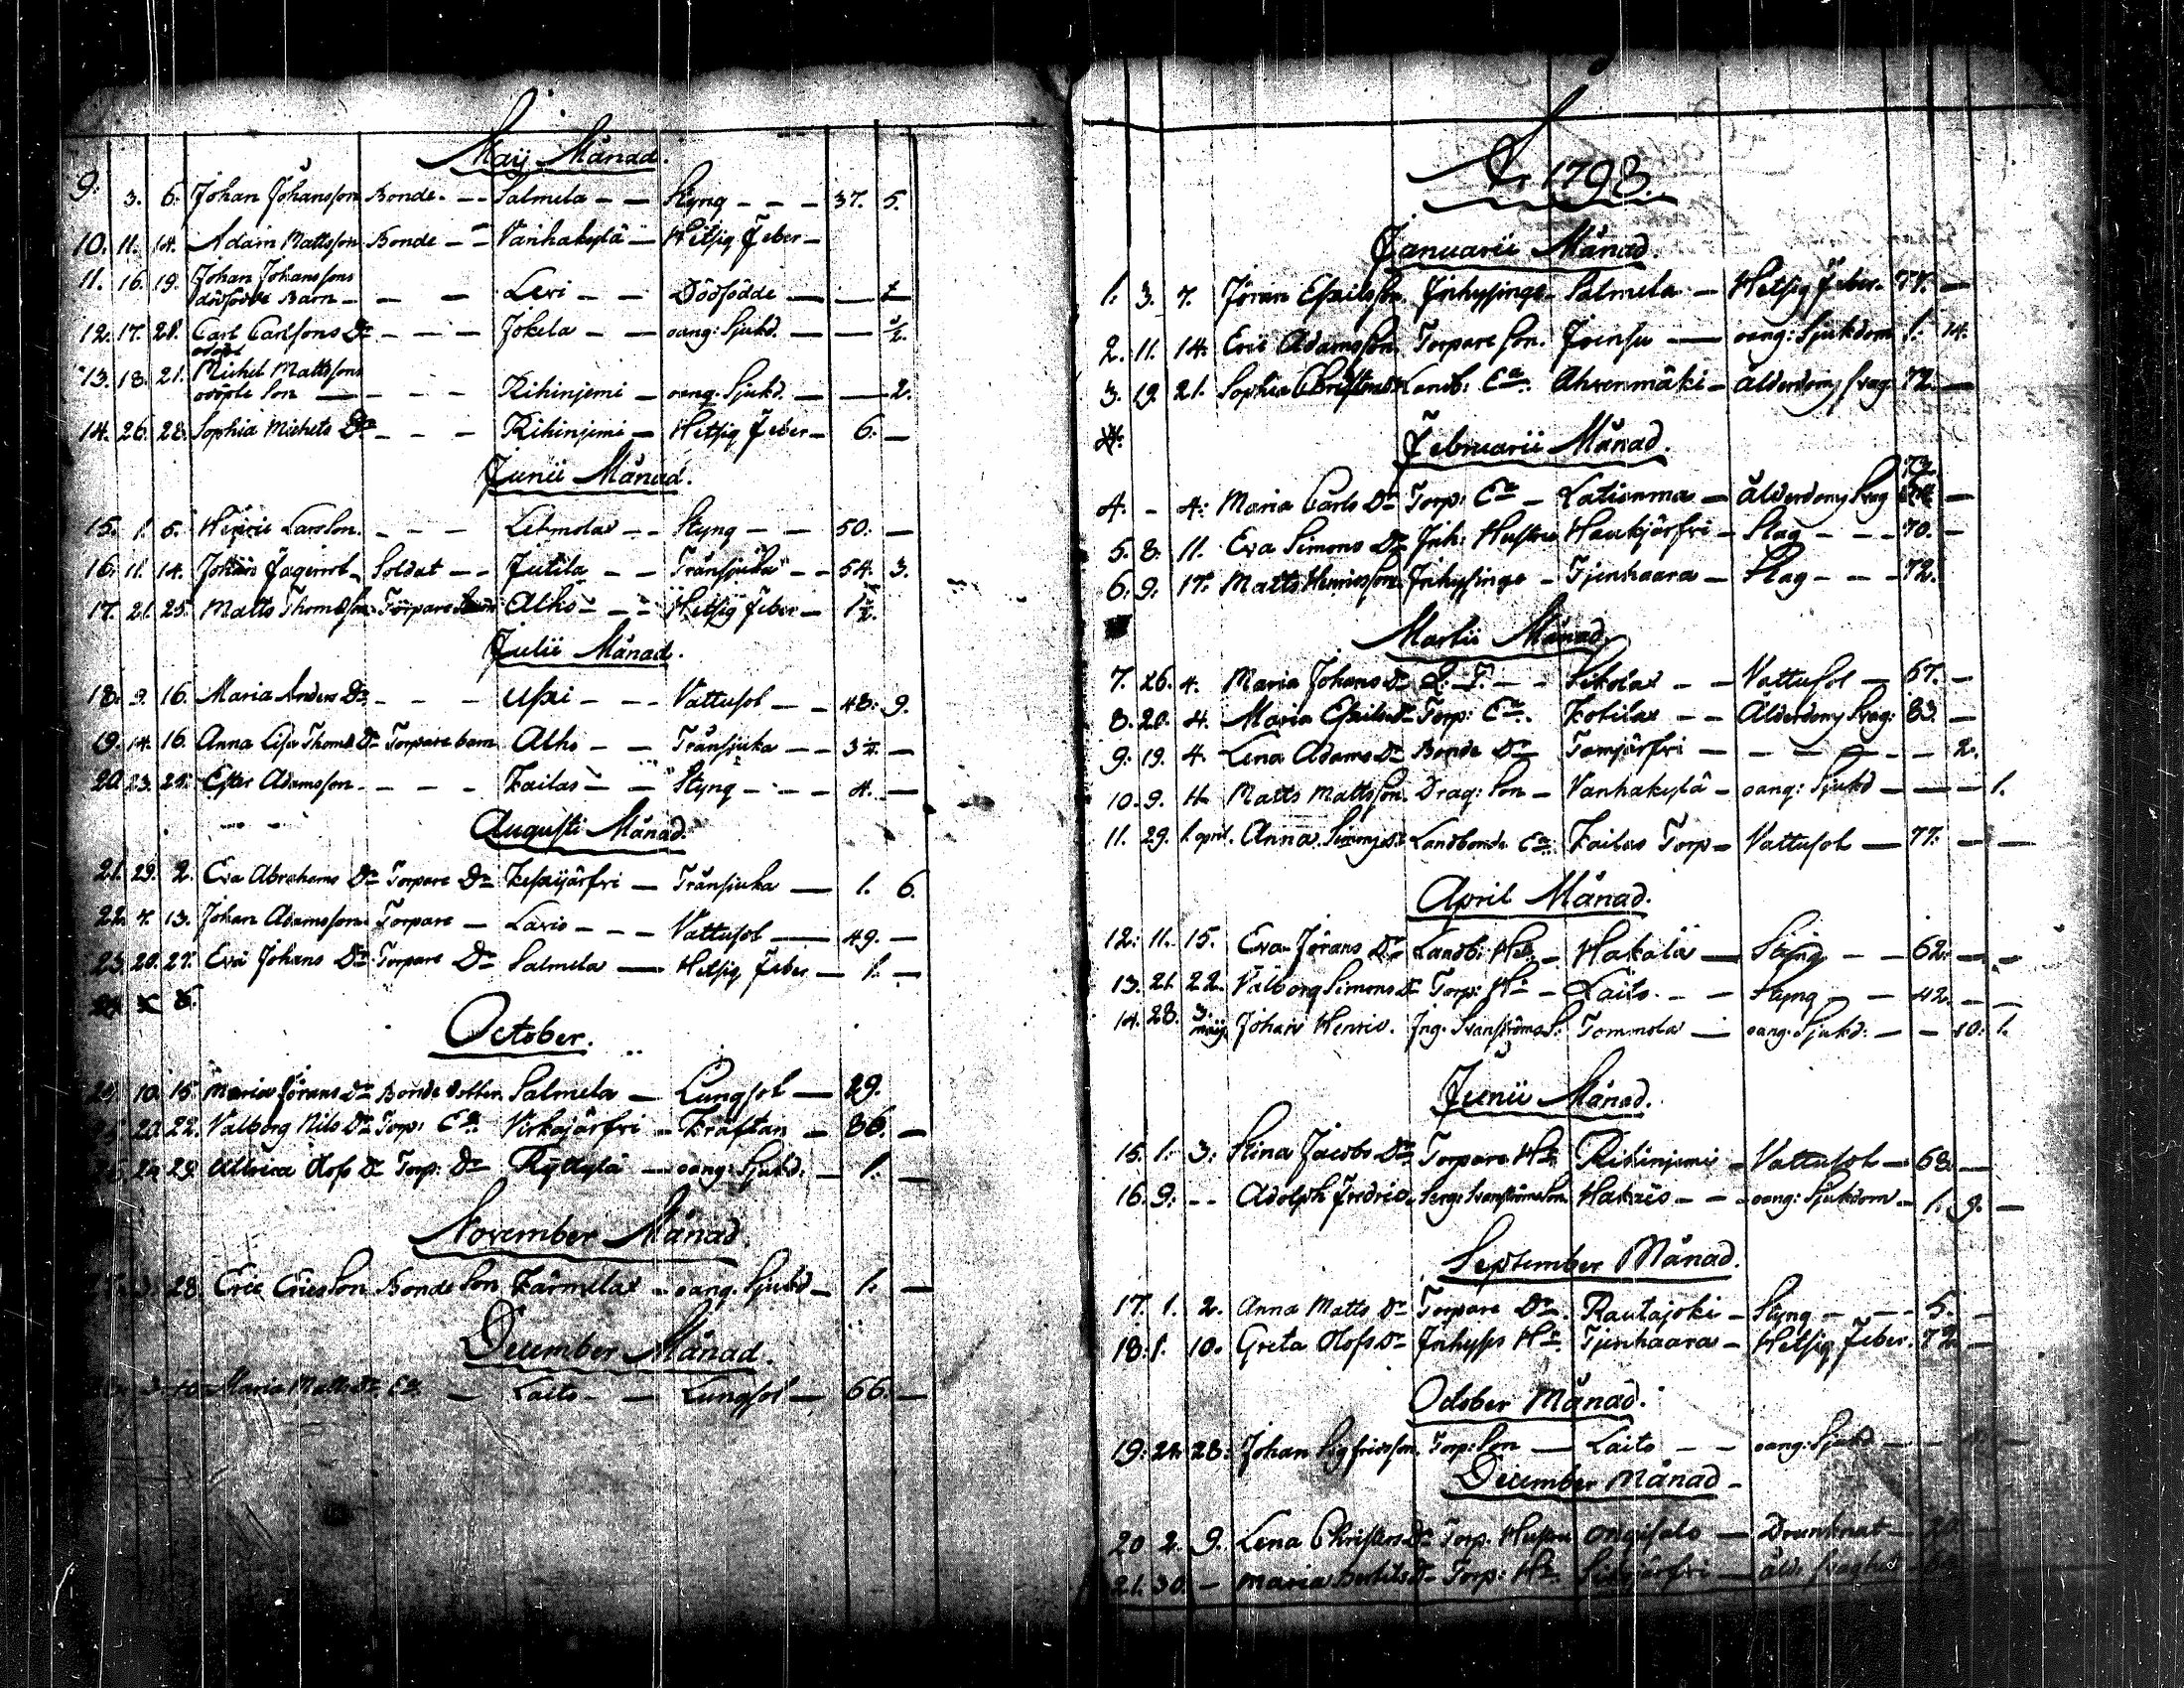 Maij Månad.
9. 3. 6. Johan Johansson Bonde. - - Salmela - - Styng - - - 37. 5.
10. 11. 14. Adam Mattsson Bonde - - Vanhakylä - Hetsig Feber -
11. 16. 19. Johan Johanssons
dödfödde Barn - - - Levi - - Dödfödde - -
12. 17. 28. Carl Carlsons Dr - - - Jokela - - oang: Sjukd. - - ½.
13. 18. 21. Michel Mattssons
odöpte Son - - - - Rihinjemi - oang. Sjukd. - - 2.
14. 26. 28. Sophia Michels Dr - - - Rihinjemi - Hetsig Feber - 6. -
Junii Månad.
15. 1. 5. Henric Larsson. - - - Lehmola - - Styng - - 50. -
16. 11. 14. Johan Jagerrot - Soldat - - Jutila - - Tränsjuka - - 54. 3.
17. 21. 25. Matts Thomasson Torpare Alho - - - Hetsig Feber - 1½.
Julii Månad.
18. 9. 16. Maria Anders Dr - - - - Vattusot - - 48. 9.
19. 14. 16. Anna Lisa Thoms Dr Torpare barn Alho - - Tränsjuka - -
20. 23. 25. Adamsson - - - - Kailas - - Styng - - - 4. -
Augusti Månad.
21. 29. 2. Eva Abrahams Dr Torpare Dr Keskijärfvi - Tränsjuka - 1. 6.
22. 7. 13. Johan Adamsson Torpare - - - - Vattusot - 49. -
23. 20. 27. Eva Johans Dr Torpare Dr Salmela - Hetsig Feber - 1. -
October.
10. 15. Maria Jörans Dr Bonde dotter Salmela - Lungsot - 29.
20. 22. Valborg Nils Dr Torp: Ea. Virkajärfvi - Kräftan - 86. -
29. Ulrica Olofs Dr Torp. Dr - oang: Sjukd. - 1. -
November Månad
28. Eric Ericsson Bonde Son Kärmela - oang. Sjukd - 1. -
December Månad.
Maria Matts Dr Ea. - Laito - - Lungsot - 66. -
A. 1793.
Januarii Månad.
1. 3. 7. Jöran Eskilsson Inhysinge - Salmela - Hetsig Feber - -
2. 11. 14. Eric Adamsson Torpare Son. Joensu - oang: Sjukdom 1. 14.
3. 19. 21. Sophia Landb: Ea. Ahvenmäki - Ålderdoms svag: 72. -
Februarii Månad.
4. - 4. Maria Carls Dr Torp: Ea - - Ålderdoms svag -
5. 8. 11. Eva Simons Dr Inh: Hustru Haukjärfvi - Slag - - - 70. -
6. 9. 17. Matts Henricsson Inhysinge - Tjenhaara - Slag - - - 72.
Martii Månad
7. 26. 4. Maria Johans Dr - - - Vattusot - 67. -
8. 20. 4. Maria Eskils Dr Torp: Ea. Kotila - - Ålderdoms svag: 83. -
9. 19. 4. Lena Adams Dr Bonde Dr Tomjärfvi - - - - - 2.
10. 9. 4. Matts Mattsson. Drag: Son - Vanhakylä - oang: Sjukd - - - 1.
11. 29. 1. april. Anna Landbonde Ea. Kailas Torp - Vattusot - 77. - -
April Månad.
12. 11. 15. Eva Jörans Dr Landb: Hu - Hakala - Styng - - 62. - -
13. 21. 22. Valborg Simons Dr Torp: Hu - Laito - - Styng - - 42. - -
14. 28. 3. maij. Johan Henric. Tommola - oang. Sjukd: - - 10. 1.
Junii Månad.
15. 1. 3. Stina Jacobs Dr Torpare Hu Rihinjemi - Vattusot - 68. -
16. 9. - - Adolph Fredric. Serg: Svanströms Son - - oang: Sjukdom - 1. 9. -
September Månad.
17. 1. 2. Anna Matts Dr Torpare Dr Rautajoki - Styng - - - 5. -
18. 1. 10. Greta Olofs Dr Inhyses Hu. Tjenhaara - Hetsig Feber. -
October Månad.
19. 24. 28. Johan Sigfridsson Torp: Son - Laito - - oang: Sjukd -
December Månad -
20 2. 9. Lena Christers Dr Torp. Hustru - Drunknat -
21. 30. - Maria Bertils Dr Torp: Hu.